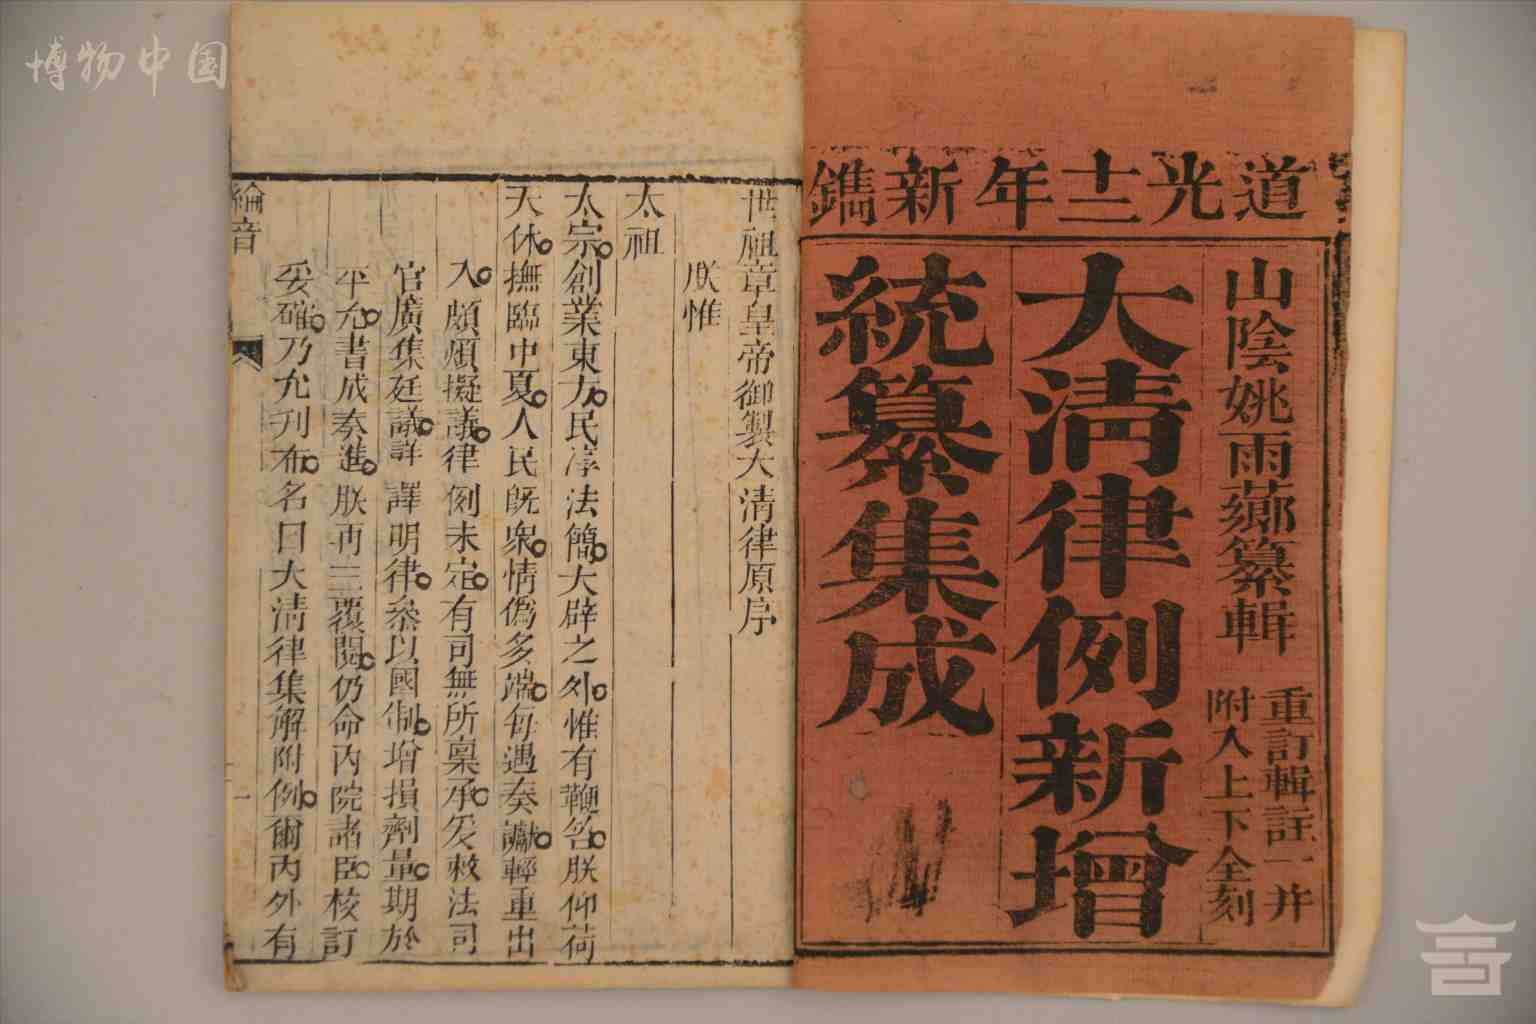 博物中国
道光十二年新鐫
山陰姚雨薌纂輯
重訂輯註一并
附入上下全刻
大清律例新增
統纂集成
世祖章皇帝御製大清律原序
朕惟
太祖
太宗創業東方民淳法簡大辟之外惟有鞭笞朕仰荷
天休撫臨中夏人民旣衆情僞多端每遇奏讞輕重出
入頗煩擬議律例未定有司無所稟承爰敕法司
官廣集廷議詳譯明律叅以國制增損劑量期於
平允書成奏進朕再三覆閱仍命內院諸臣校訂
妥確乃允刊布名曰大清律集解附例爾內外有
綸音
一